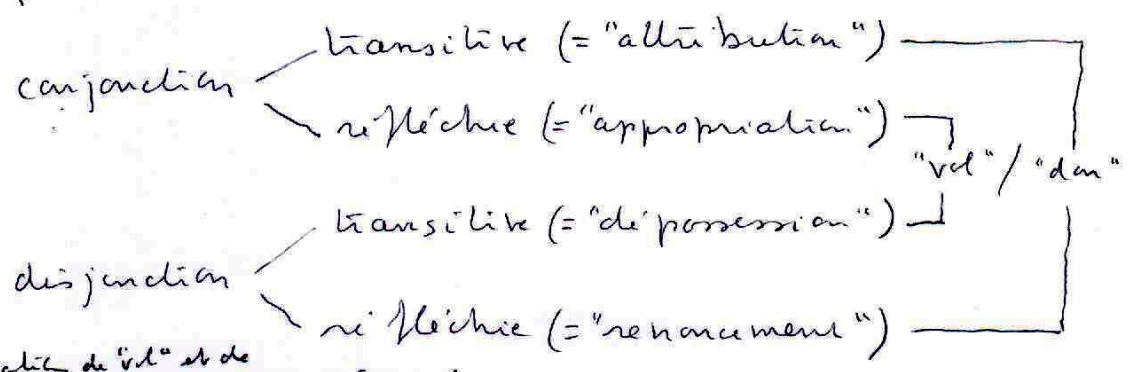 transitive (= "attribution")
conjonction
réfléchie (= "appropriation")
"vol" / "don"
transitive (= "dépossession")
disjonction
réfléchie (= "renoncement")
de "vol" et de